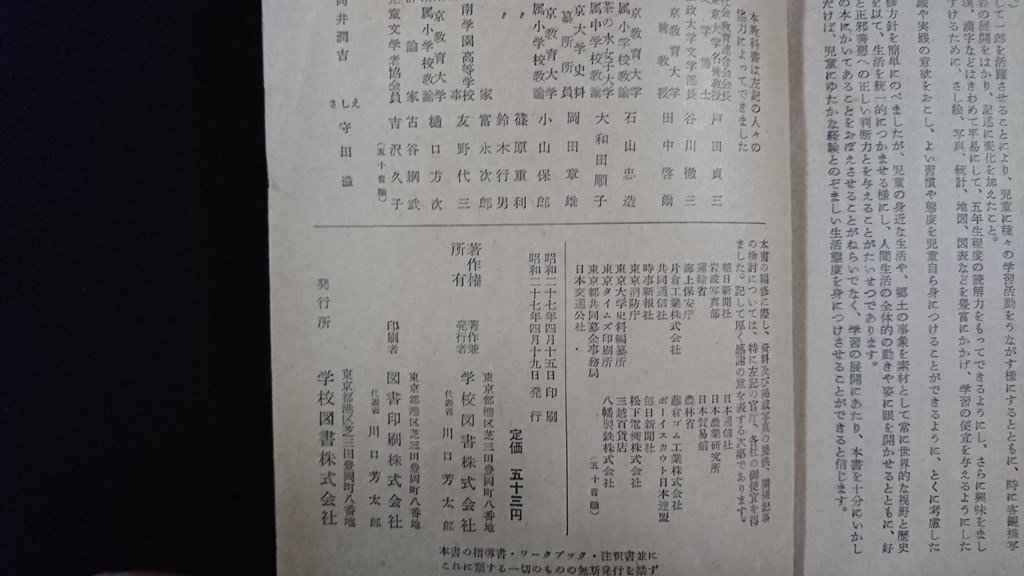 して一郎を活躍させることにより、児童に種々の学習活動をうながす様にするとともに、時に客観描写
界の展開をはかり、記述に変化を加えたこと。
現、漢字などはきわめて平易にして、五年生程度の読解力をもってできるようにし、さらに興味をまし
づけるために、さし絵、写真、統計、地図、図表などを豊富にかかげ、学習の便宜を与えるようにした
識や実践の意欲をおこし、よい習慣や態度を児童自ら身につけることができるように、とくに考慮した
修方針を簡単にのべましたが、児童の身近な生活や、郷土の事象を素材として常に世界的な視野と歴史
を以て、生活を統一的につかませる様にし、人間生活の全体的の動きや姿に眼を開かせるとともに、好
と正邪善悪への正しい判断力とを与えることがたいせつであります。
の本にかいてあることをおぼえさせることがねらいでなく、学習の展開にあたり、本書を十分にいかし
だけば、児童にゆたかな経験とのぞましい生活態度を身につけさせることができると信じます。
本教科書は左記の人々の
協力によってできました
社会教育連合会会長
東京大学名誉教授
文学博士
戸田貞三
法政大学文学部長
谷川徹三
東京教育大学
助教授
田中啓爾
東京教育大学
附属小学校教諭
石山忠造
お茶の水女子大学
附属中学校教諭
大和田順子
東京大学史料
編纂所所員
岡田章雄
東京教育大学
附属小学校教諭
小山保郎
〃 篠原重利
〃 鈴木行男
家 富永次郎
南学園高等学校
事 友野代三
附属小学校教諭
樋口方次
評論家 古谷綱武
児童文学者協会員 吉沢久子
(五十音順)
さしえ 守田滋
向井潤吉
本書の編修に際し、資料及び掲載写真の提供、関係記事
の検討については、特に左記の官庁、各社の御便宜を得
ました。記して厚く感謝の意を表する次第であります。
朝日新聞社
岩波写真部
運輸省
海上保安庁
片倉工業株式会社
共同通信社
時事新報社
東京消防庁
東京大学史料編纂所
東京タイムズ印刷所
東京都共同募金事務局
日本交通公社
日本通信社
日本農業研究所
日本貿易館
農林省
藤倉ゴム工業株式会社
ボーイスカウト日本連盟
毎日新聞社
松下電機株式会社
三越百貨店
八幡製鉄株式会社
(五十音順)
昭和二十七年四月十五日印刷
昭和二十七年四月十九日発行
定価 五十三円
著作権
所有
著作兼
発行者
東京都港区芝三田豊岡町八番地
学校図書株式会社
代表者 川口芳太郎
印刷者
東京都港区芝三田豊岡町八番地
図書印刷株式会社
代表者 川口芳太郎
発行所
東京都港区芝三田豊岡町八番地
学校図書株式会社
本書の指導書・ワークブック・注釈書並に
これに類する一切のものの無断発行を禁ず